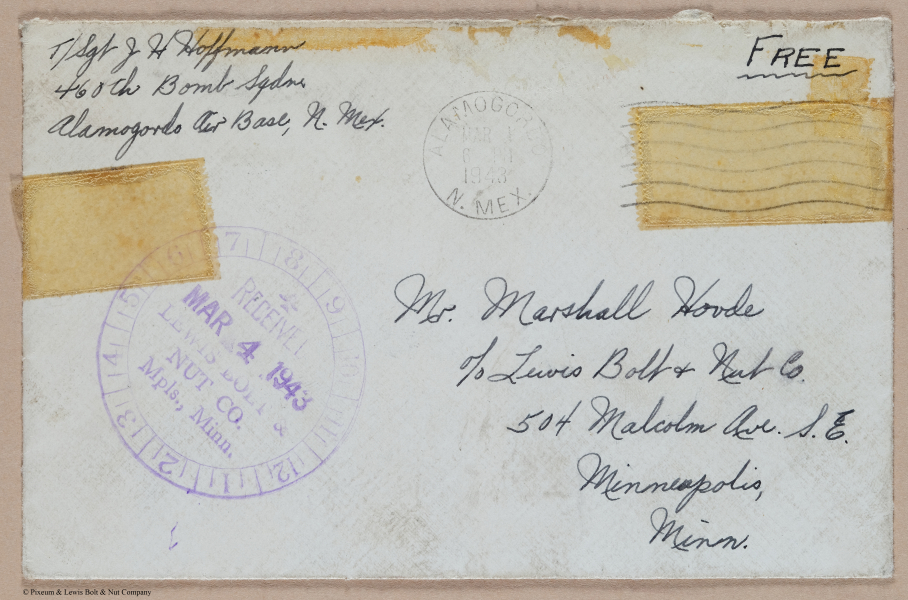 T/Sgt J H Hoffmann
460th Bomb Sqdn.
Alamogordo Air Base, N. Mex.
FREE
ALAMOGORDO
MAR
1943
N. MEX.
1 2 3 4 5 6 7 8 9 10 11 12
RECEIVED
MAR 4 1943
LEWIS BOLT &
NUT CO.
Mpls., Minn.
Mr. Marshall Hovde
c/o Lewis Bolt & Nut Co.
504 Malcolm Ave. S.E.
Minneapolis,
Minn.
© Pixeum & Lewis Bolt & Nut Company